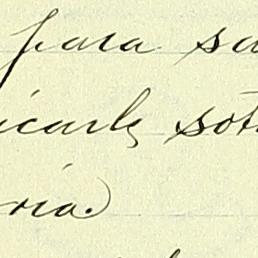 para su
icarle sob
ria.